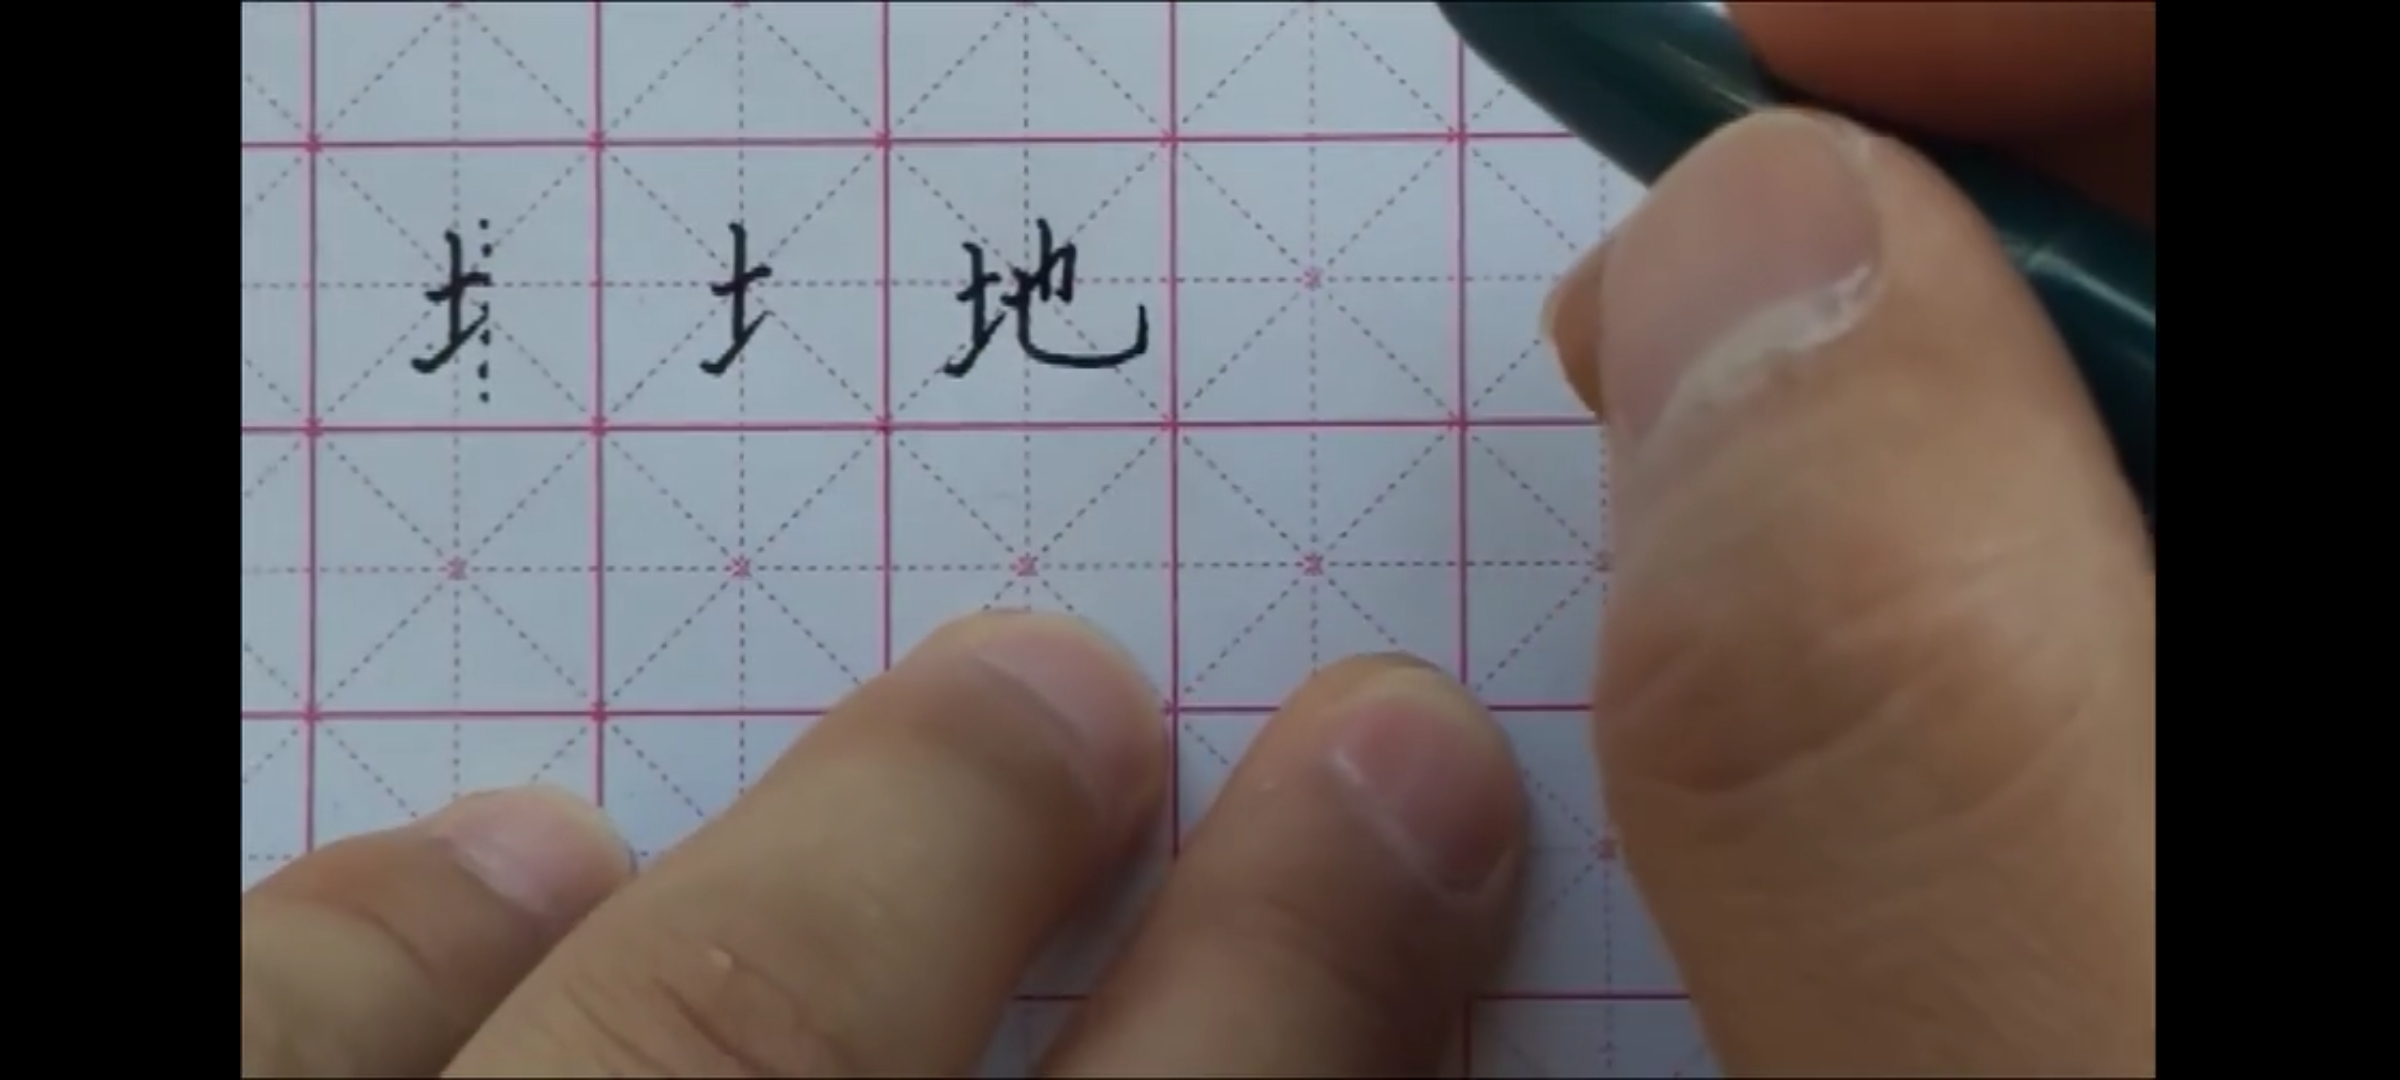 土 土 地